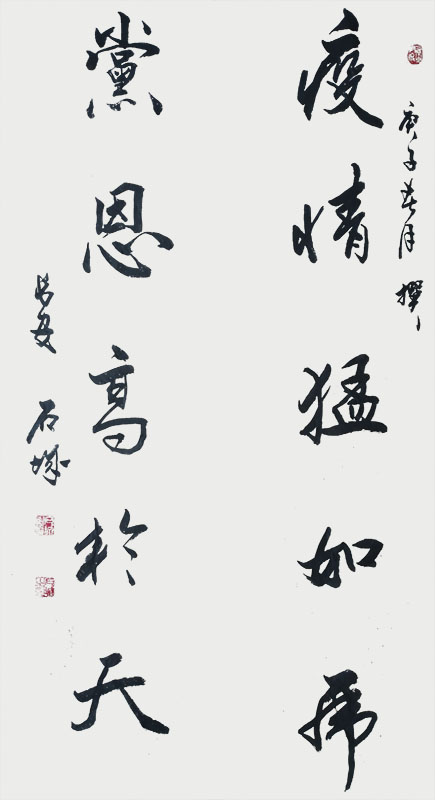 庚子春月 撰
疫情猛如虎
黨恩高於天
長安 石城